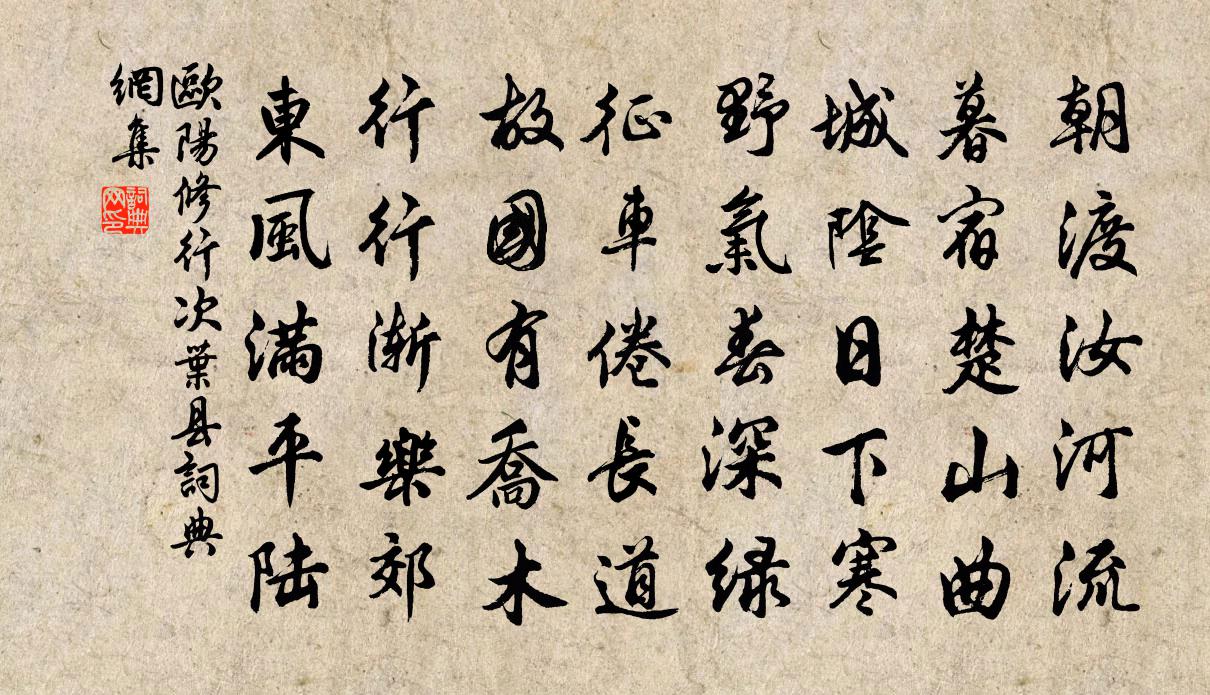 朝渡汝河流
暮宿楚山曲
城陰日下寒
野氣春深绿
征車倦長道
故國有喬木
行行漸樂郊
東風滿平陆
歐陽修行次葉县詞典
網集
詞典
网印